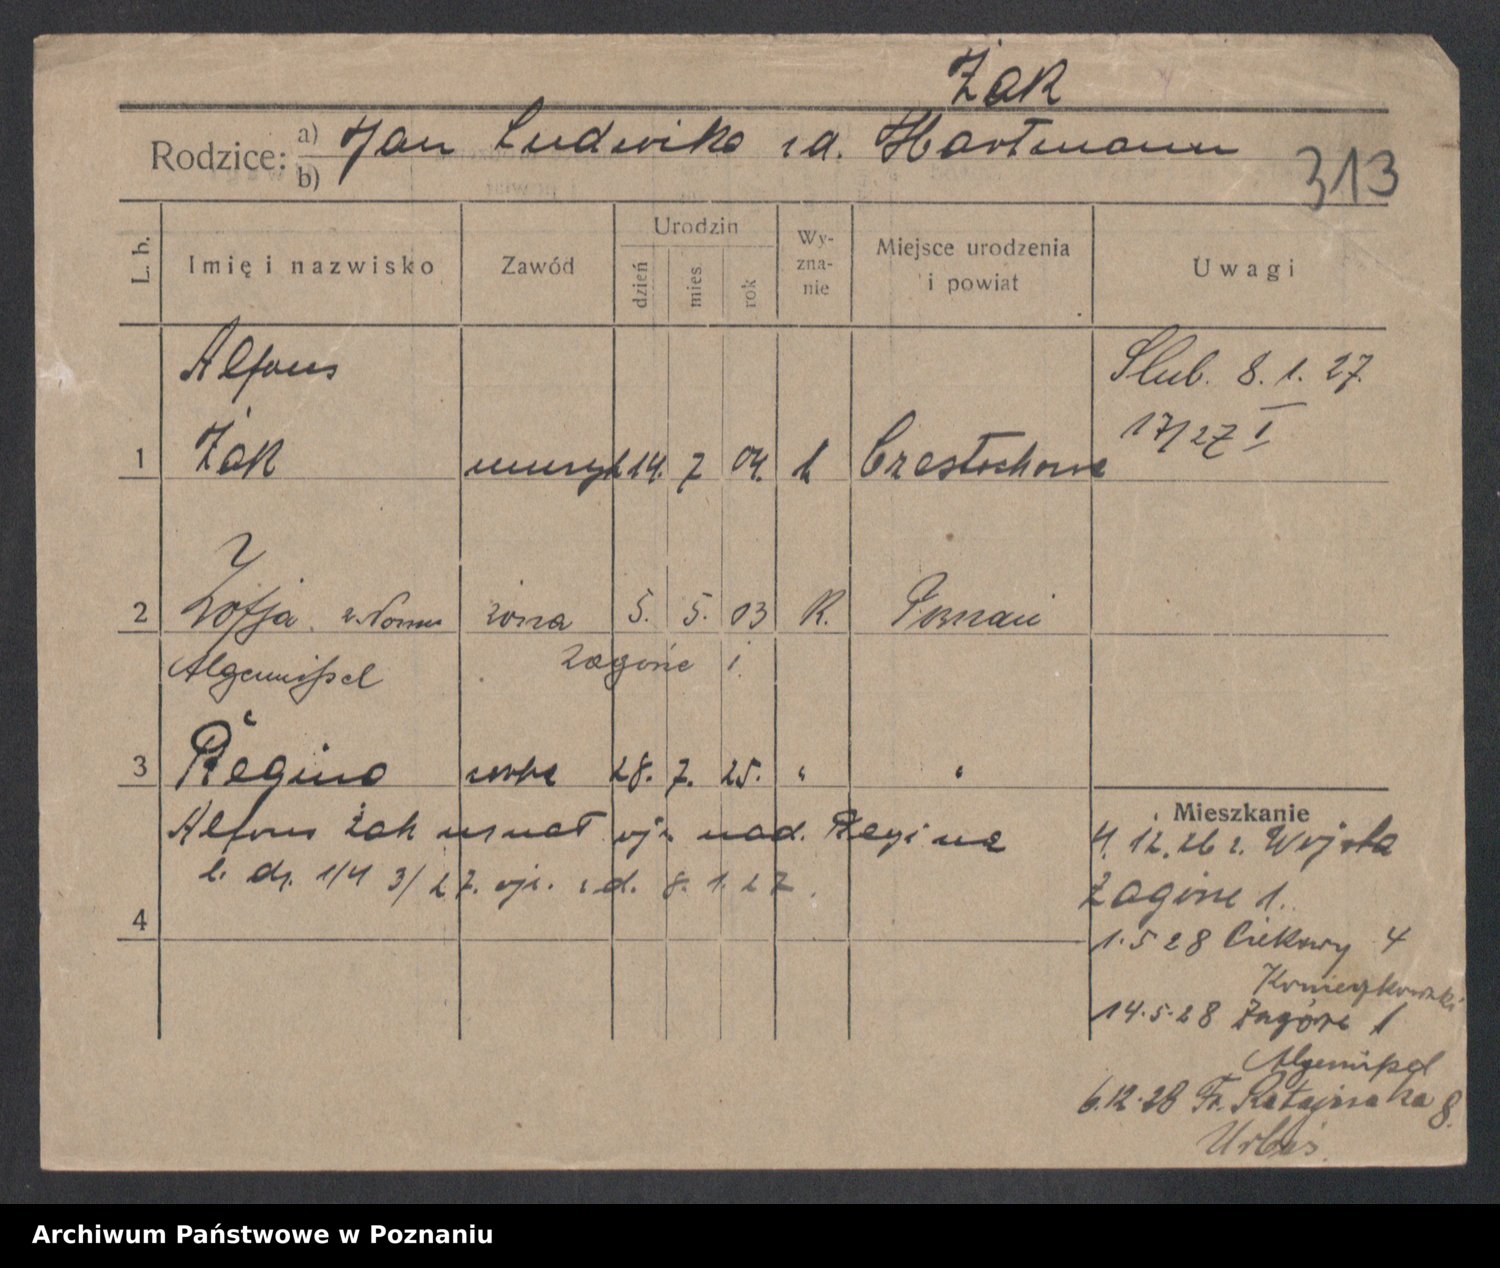 Żak
Rodzice: a) Jan Ludwika z d. Hartmann
b)
313
L. b.
Imię i nazwisko
Zawód
Urodzin
dzień
mies
rok
Wy-
zna-
nie
Miejsce urodzenia
i powiat
Uwagi
Alfons
Ślub. 8. 1. 27.
17/27 I
1 Żak muzyk 14. 7 04. k Częstochowa
2 Zofja żona 5. 5. 03 R. Poznań
Zagórze 1.
3 Regina 28. 7. 25. " "
Mieszkanie
Alfons Żak uznał ojc. nad. Reginą
4. 12. 26 z. Wojska
1/4 3/27. ojc. z d. 8. 1. 27.
Zagórze 1.
4
1. 5 28 4
14. 5. 28 Zagórze 1
6. 12. 28 Fr. Ratajczaka 8.
Urbas
Archiwum Państwowe w Poznaniu